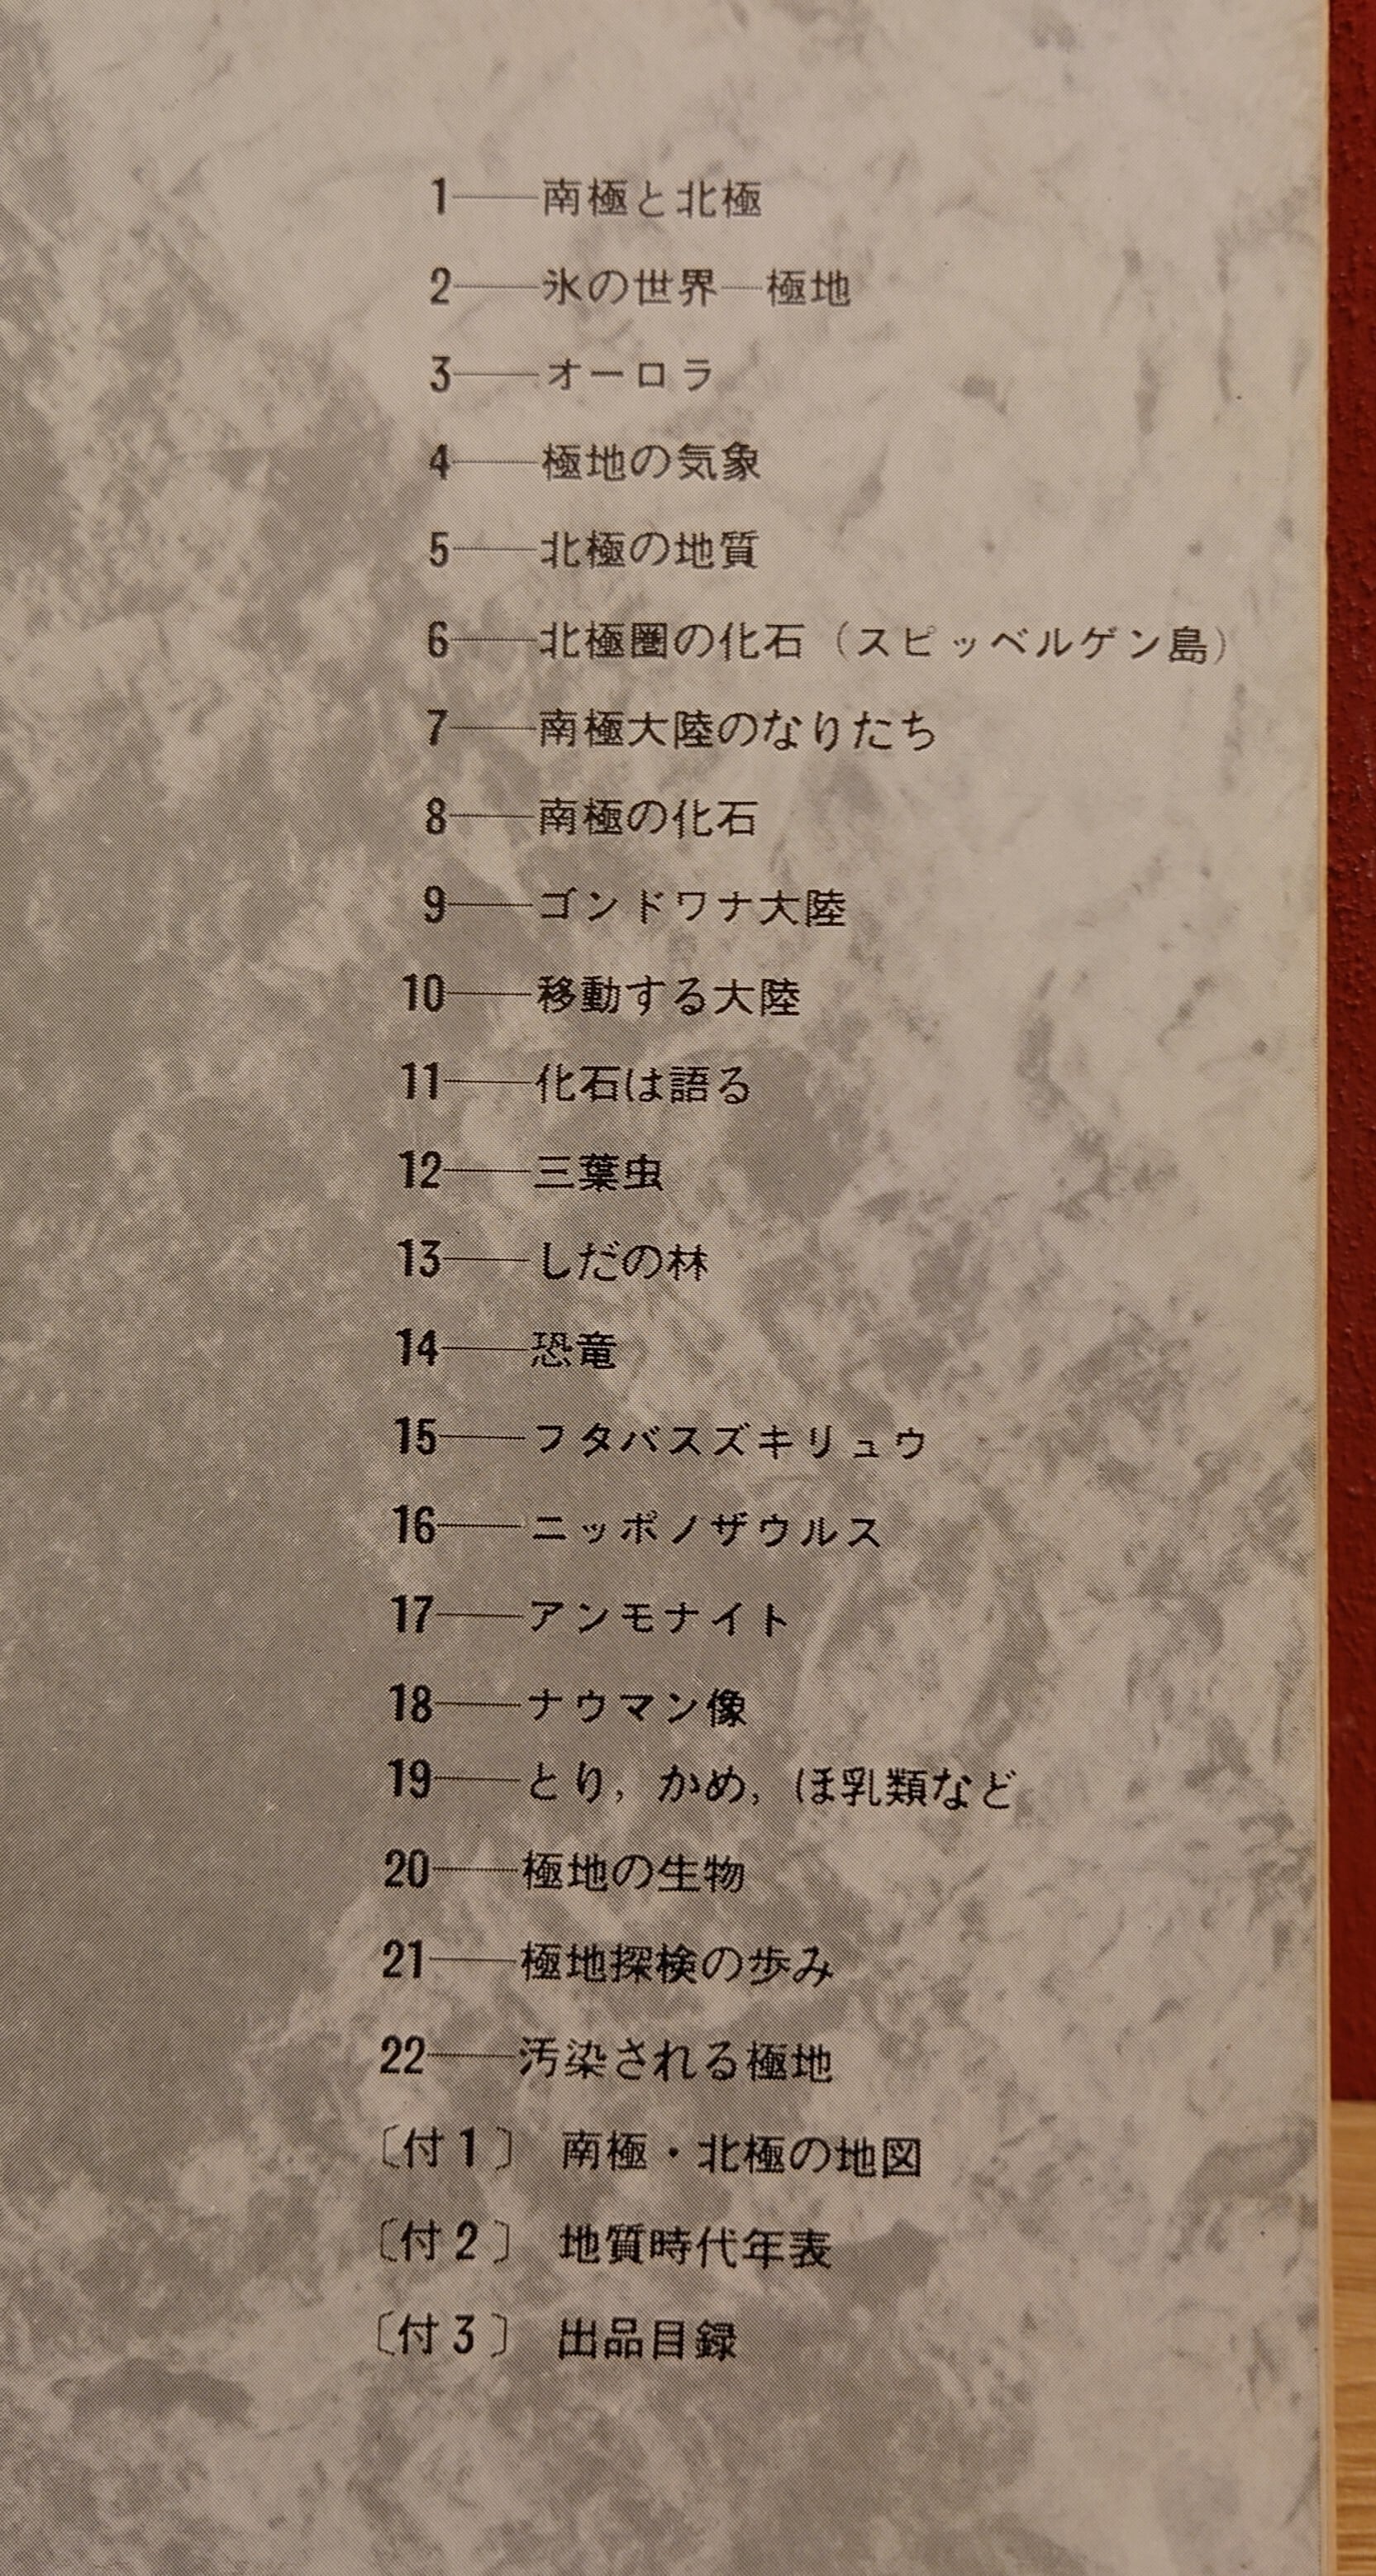 1——南極と北極
2——氷の世界—極地
3——オーロラ
4——極地の気象
5——北極の地質
6——北極圏の化石（スピッベルゲン島）
7——南極大陸のなりたち
8——南極の化石
9——ゴンドワナ大陸
10——移動する大陸
11——化石は語る
12——三葉虫
13——しだの林
14——恐竜
15——フタバスズキリュウ
16——ニッポノザウルス
17——アンモナイト
18——ナウマン像
19——とり，かめ，ほ乳類など
20——極地の生物
21——極地探検の歩み
22——汚染される極地
〔付1〕 南極・北極の地図
〔付2〕 地質時代年表
〔付3〕 出品目録